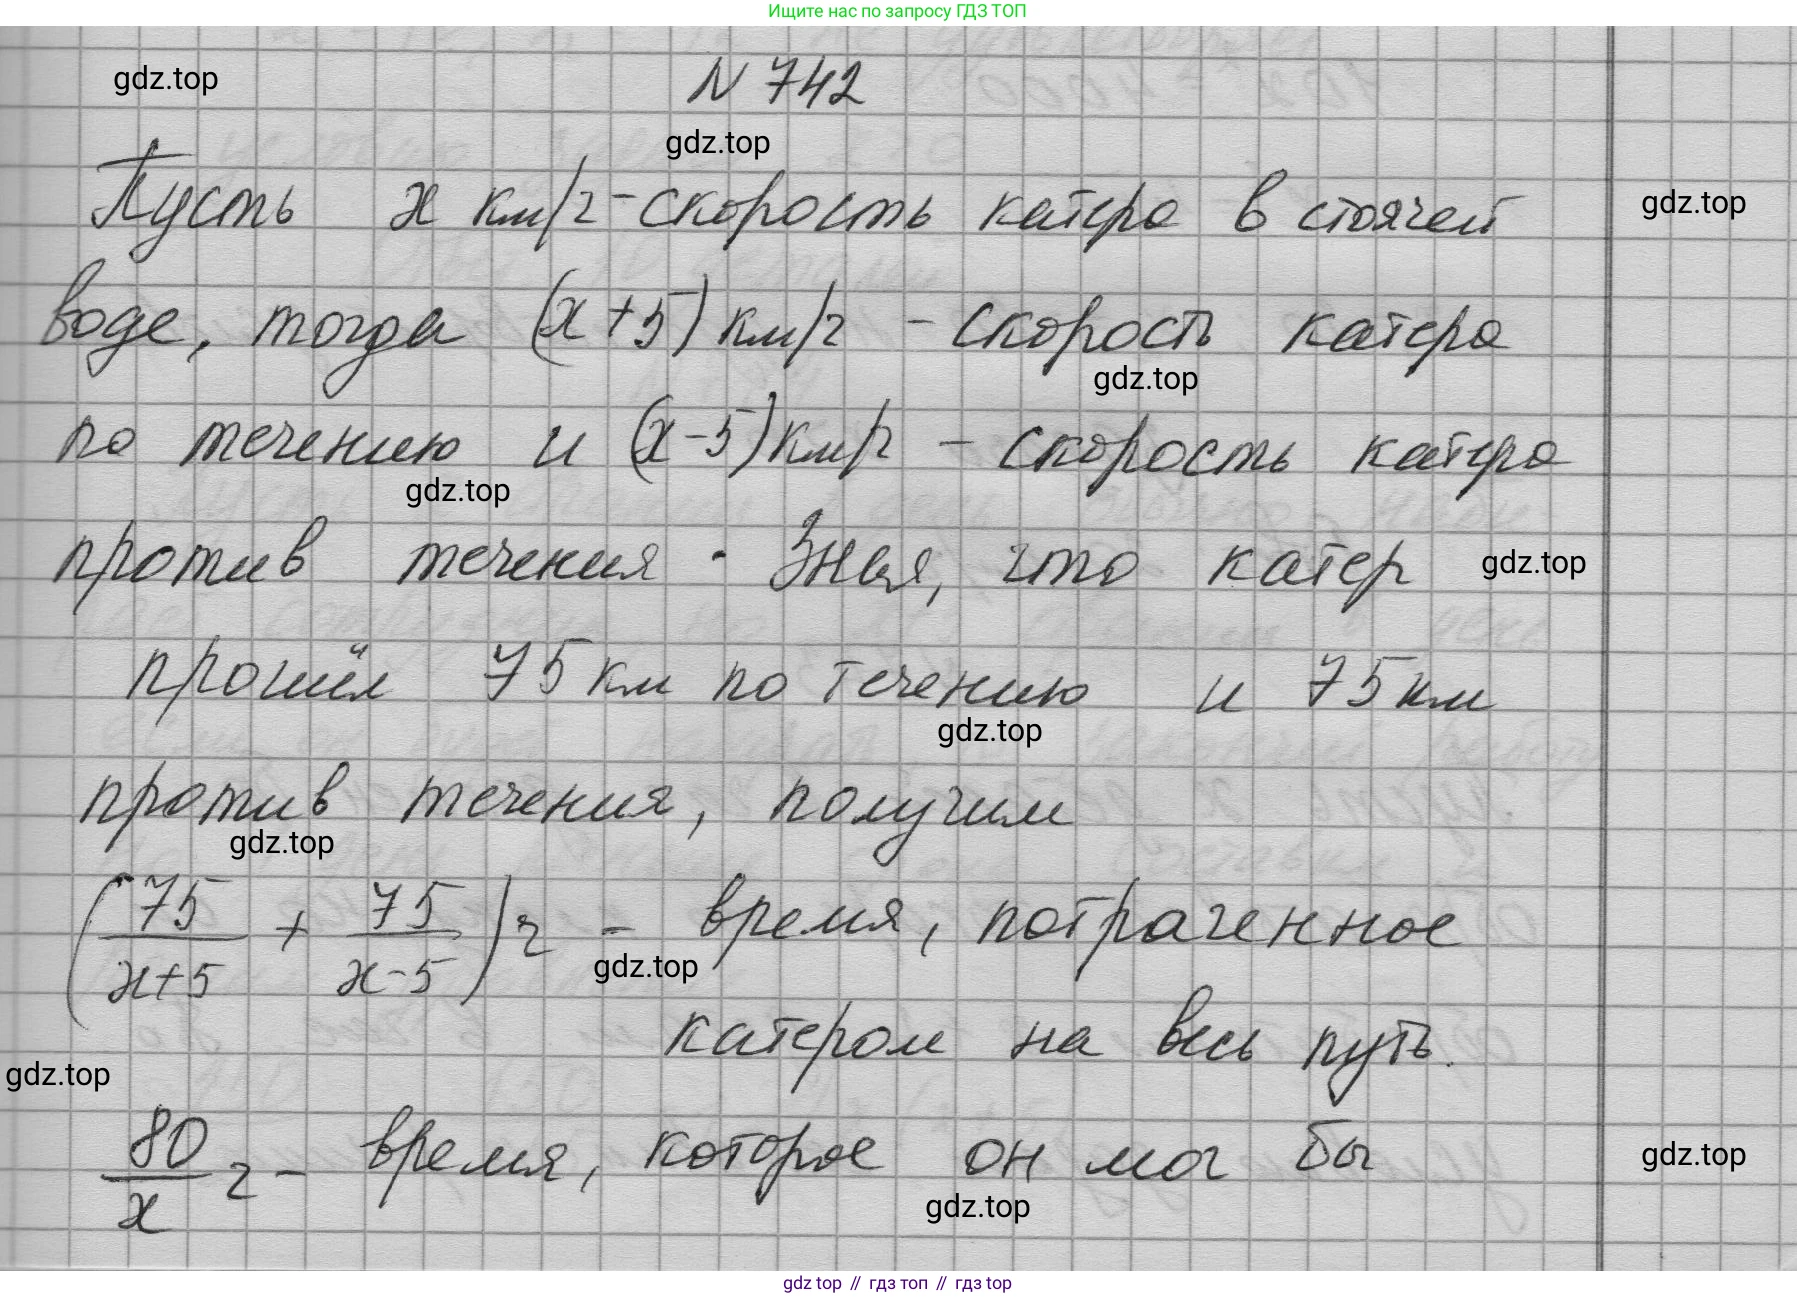 Ищите нас по запросу ГДЗ ТОП
gdz.top
N 742
gdz.top
Пусть x км/ч - скорость катера в стоячей
gdz.top
воде, тогда (x+5) км/ч - скорость катера
gdz.top
по течению и (x-5) км/ч - скорость катера
gdz.top
против течения. Зная, что катер
gdz.top
прошёл 75 км по течению и 75 км
gdz.top
против течения, получим
gdz.top
(75/(x+5) + 75/(x-5)) ч - время, потраченное
gdz.top
катером на весь путь.
gdz.top
80/x ч - время, которое он мог бы
gdz.top
gdz.top
gdz top // гдз топ // гдз top